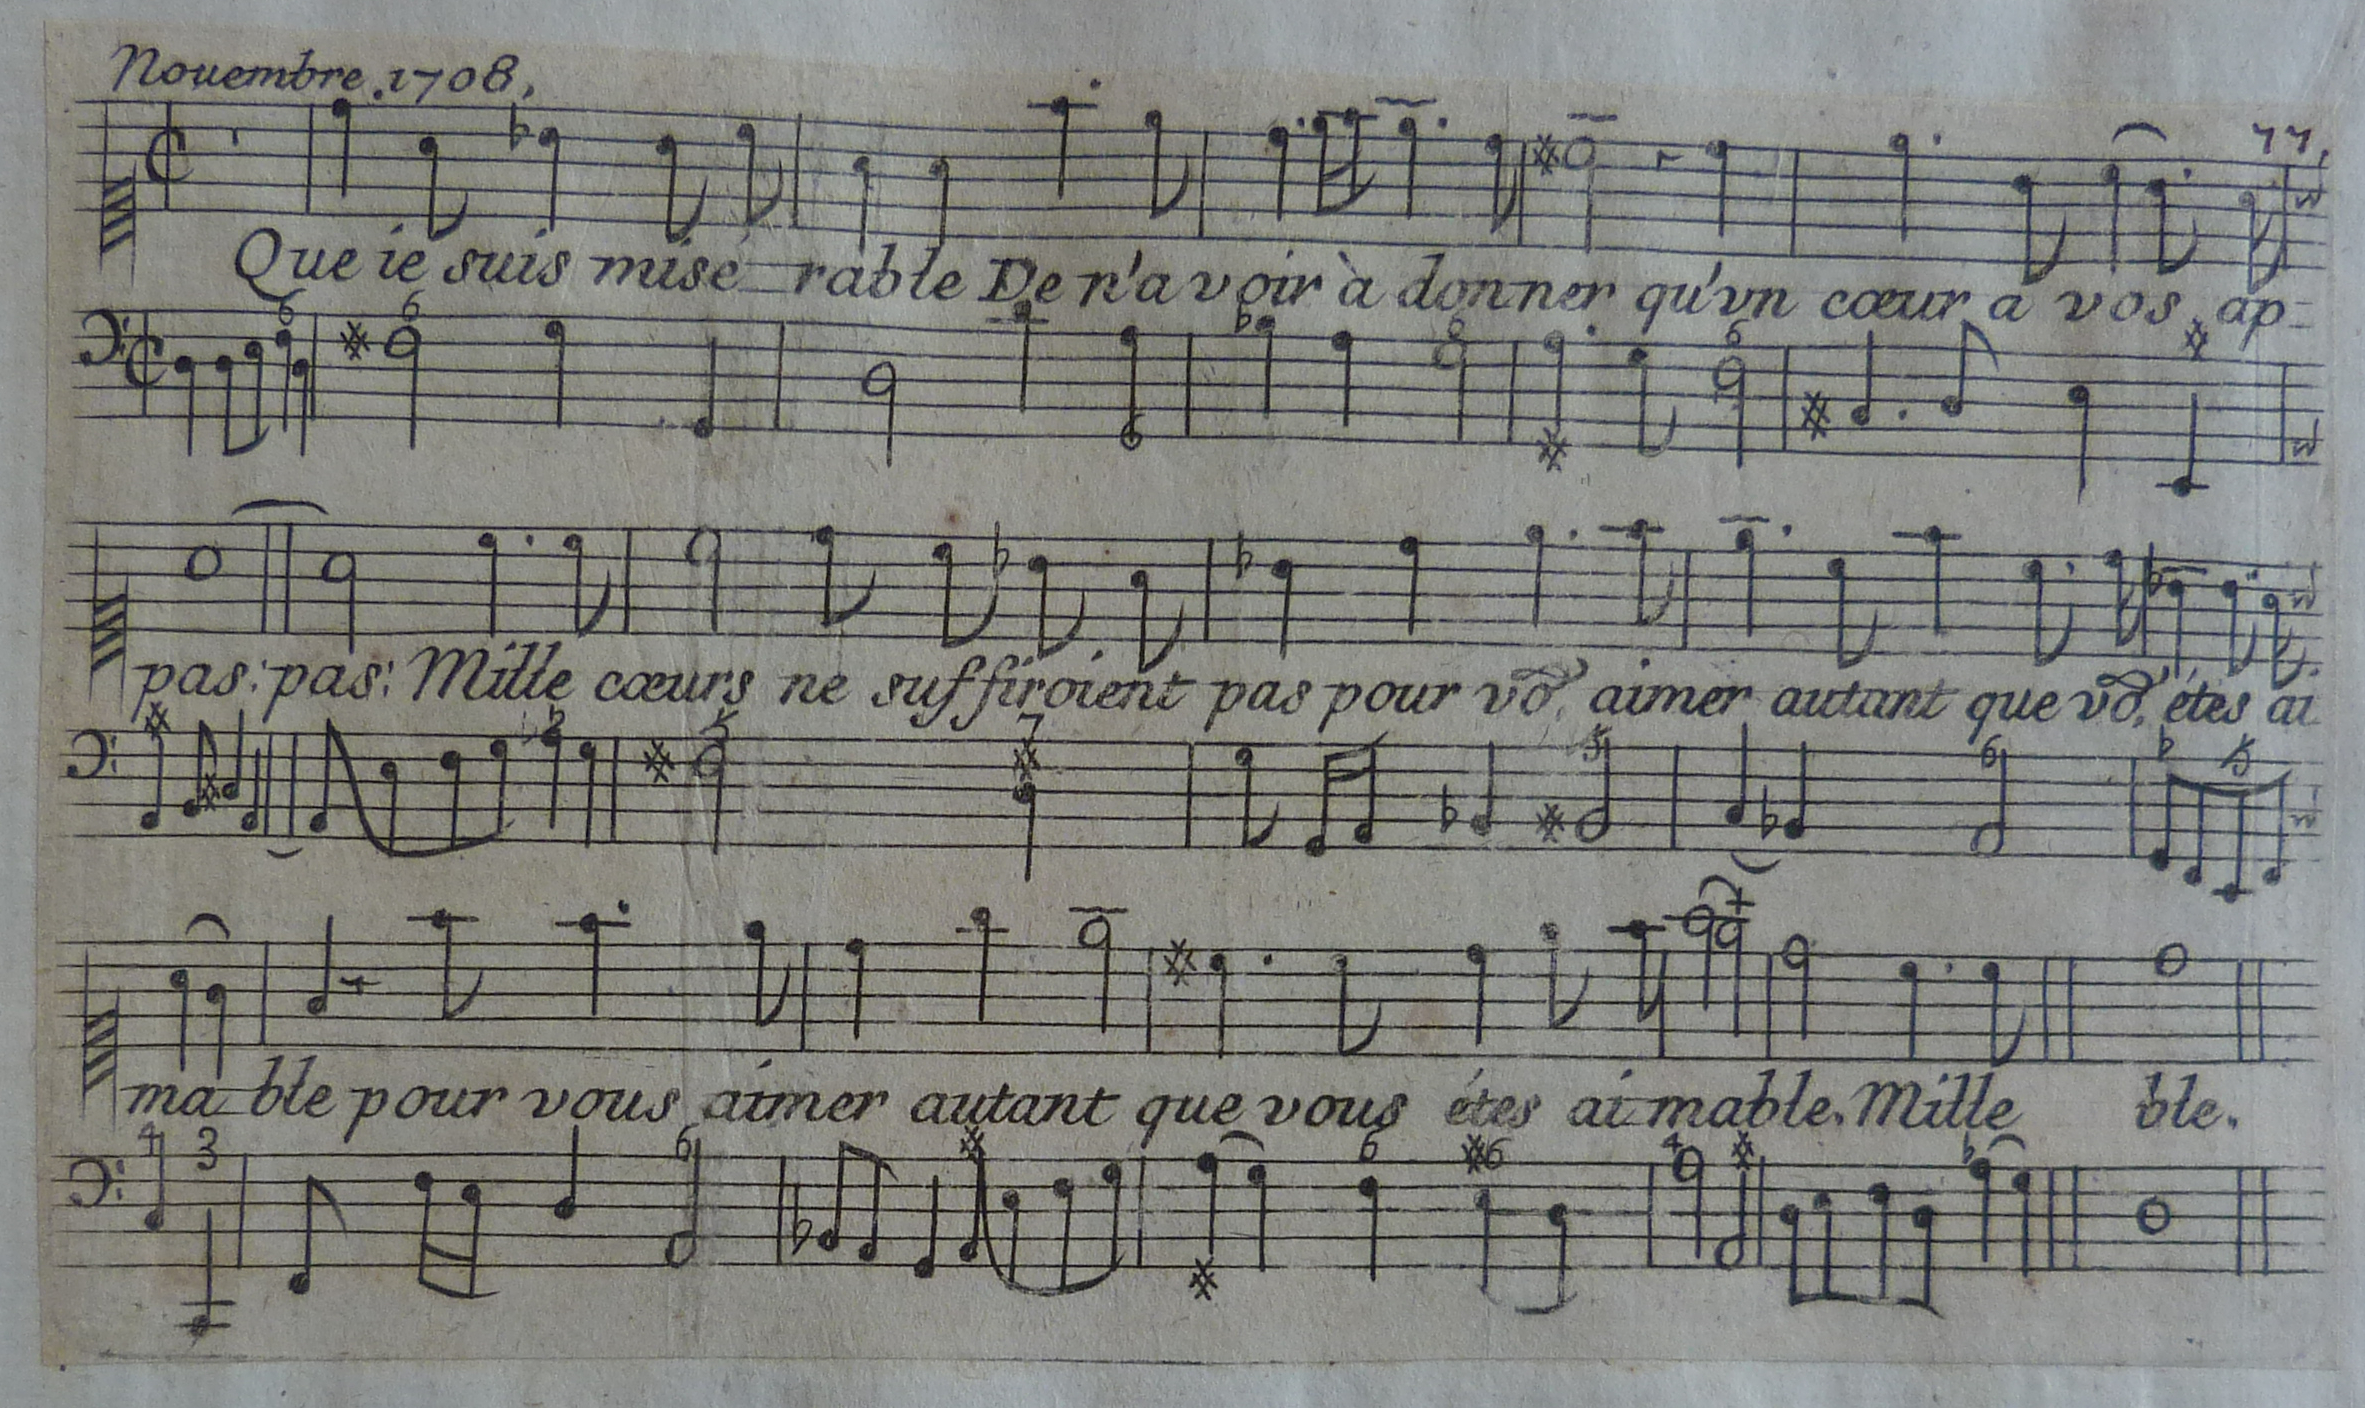 Nouembre.1708,
77,
Que ie suis misé_rable De n'avoir à donner qu'vn cœur a vos ap-
6 6 6 6 6
pas: pas: Mille cœurs ne suffiroient pas pour võ, aimer autant que võ, étes ai
7 6
ma_ble pour vous aimer autant que vous étes ai-mable. Mille ble.
4 3 6 6 6 4